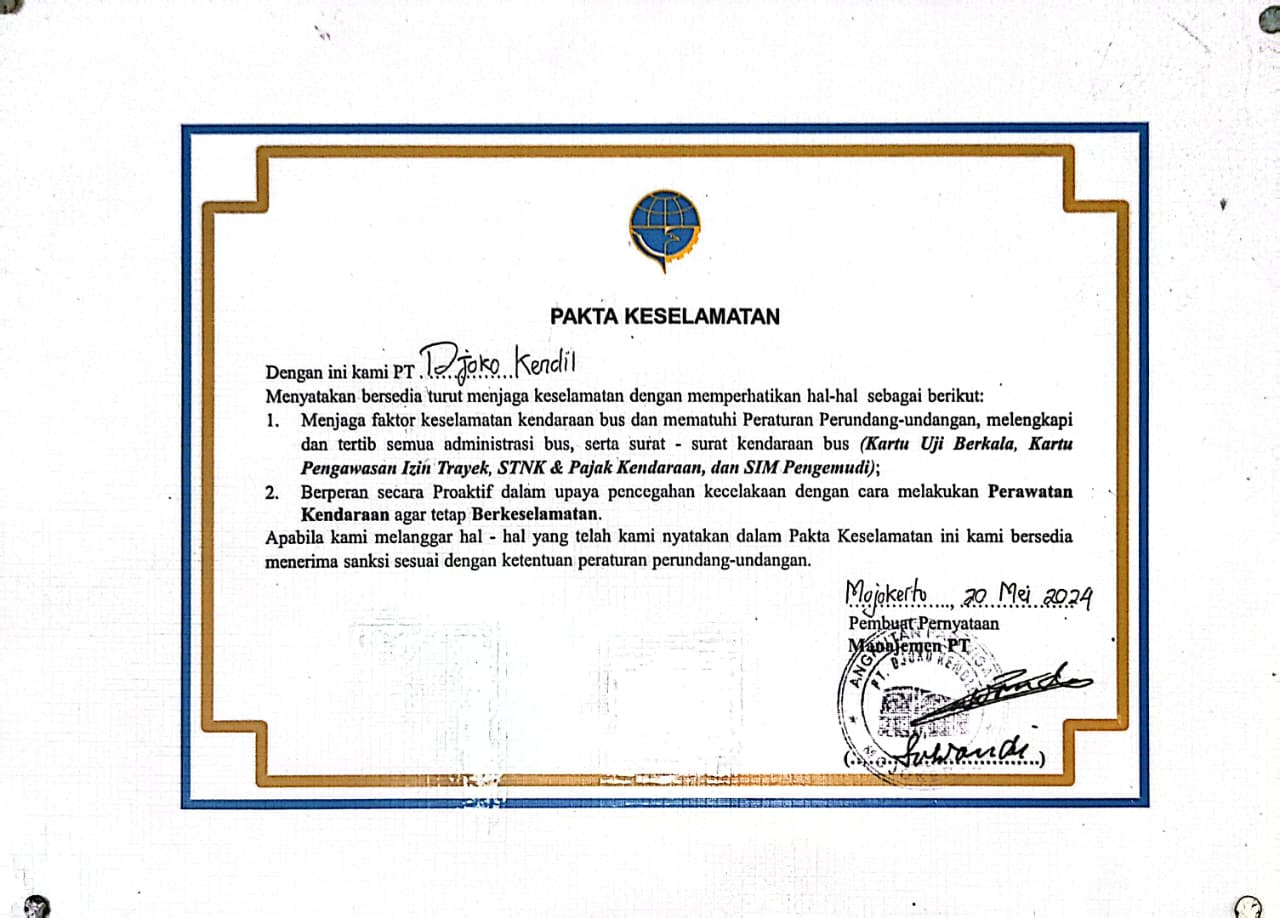 PAKTA KESELAMATAN
Dengan ini kami PT Djoko Kendil
Menyatakan bersedia turut menjaga keselamatan dengan memperhatikan hal-hal sebagai berikut:
1. Menjaga faktor keselamatan kendaraan bus dan mematuhi Peraturan Perundang-undangan, melengkapi
dan tertib semua administrasi bus, serta surat - surat kendaraan bus (Kartu Uji Berkala, Kartu
Pengawasan Izin Trayek, STNK & Pajak Kendaraan, dan SIM Pengemudi);
2. Berperan secara Proaktif dalam upaya pencegahan kecelakaan dengan cara melakukan Perawatan
Kendaraan agar tetap Berkeselamatan.
Apabila kami melanggar hal - hal yang telah kami nyatakan dalam Pakta Keselamatan ini kami bersedia
menerima sanksi sesuai dengan ketentuan peraturan perundang-undangan.
Mojokerto, 20 Mei 2024
Pembuat Pernyataan
Manajemen PT
PT. DJOKO KENDIL
(Suwandi)